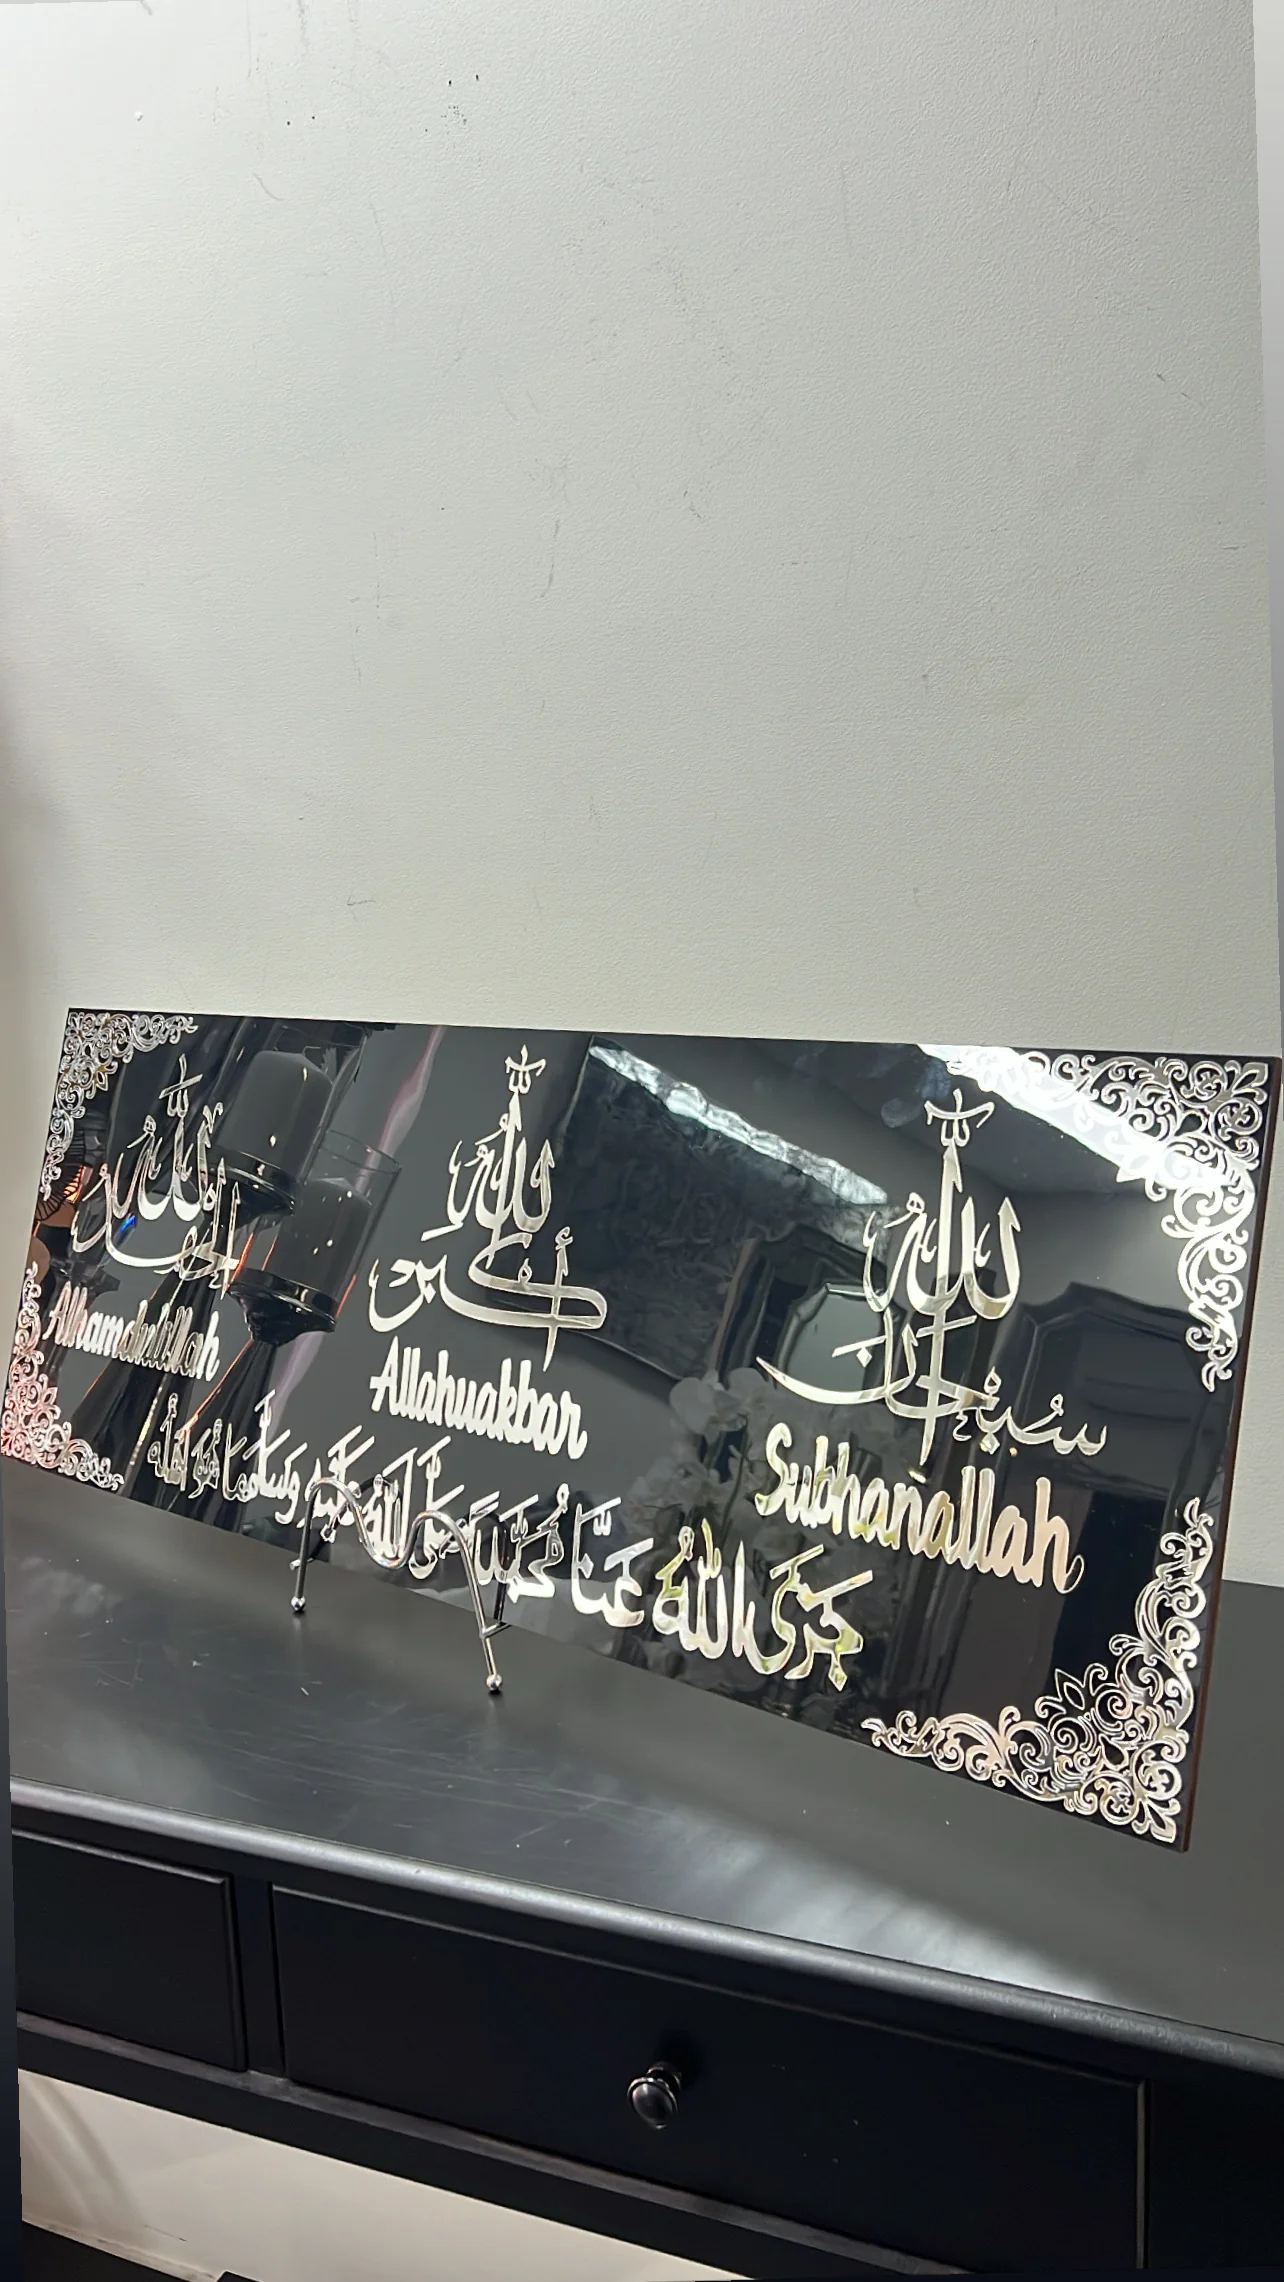 سبحان الله
Subhanallah
الله أكبر
Allahuakbar
الحمد لله
Alhamdulillah
جَزَى اللهُ عَنَّا مُحَمَّدًا صَلَّى اللهُ عَلَيْهِ وَسَلَّمَ مَا هُوَ أَهْلُهُ